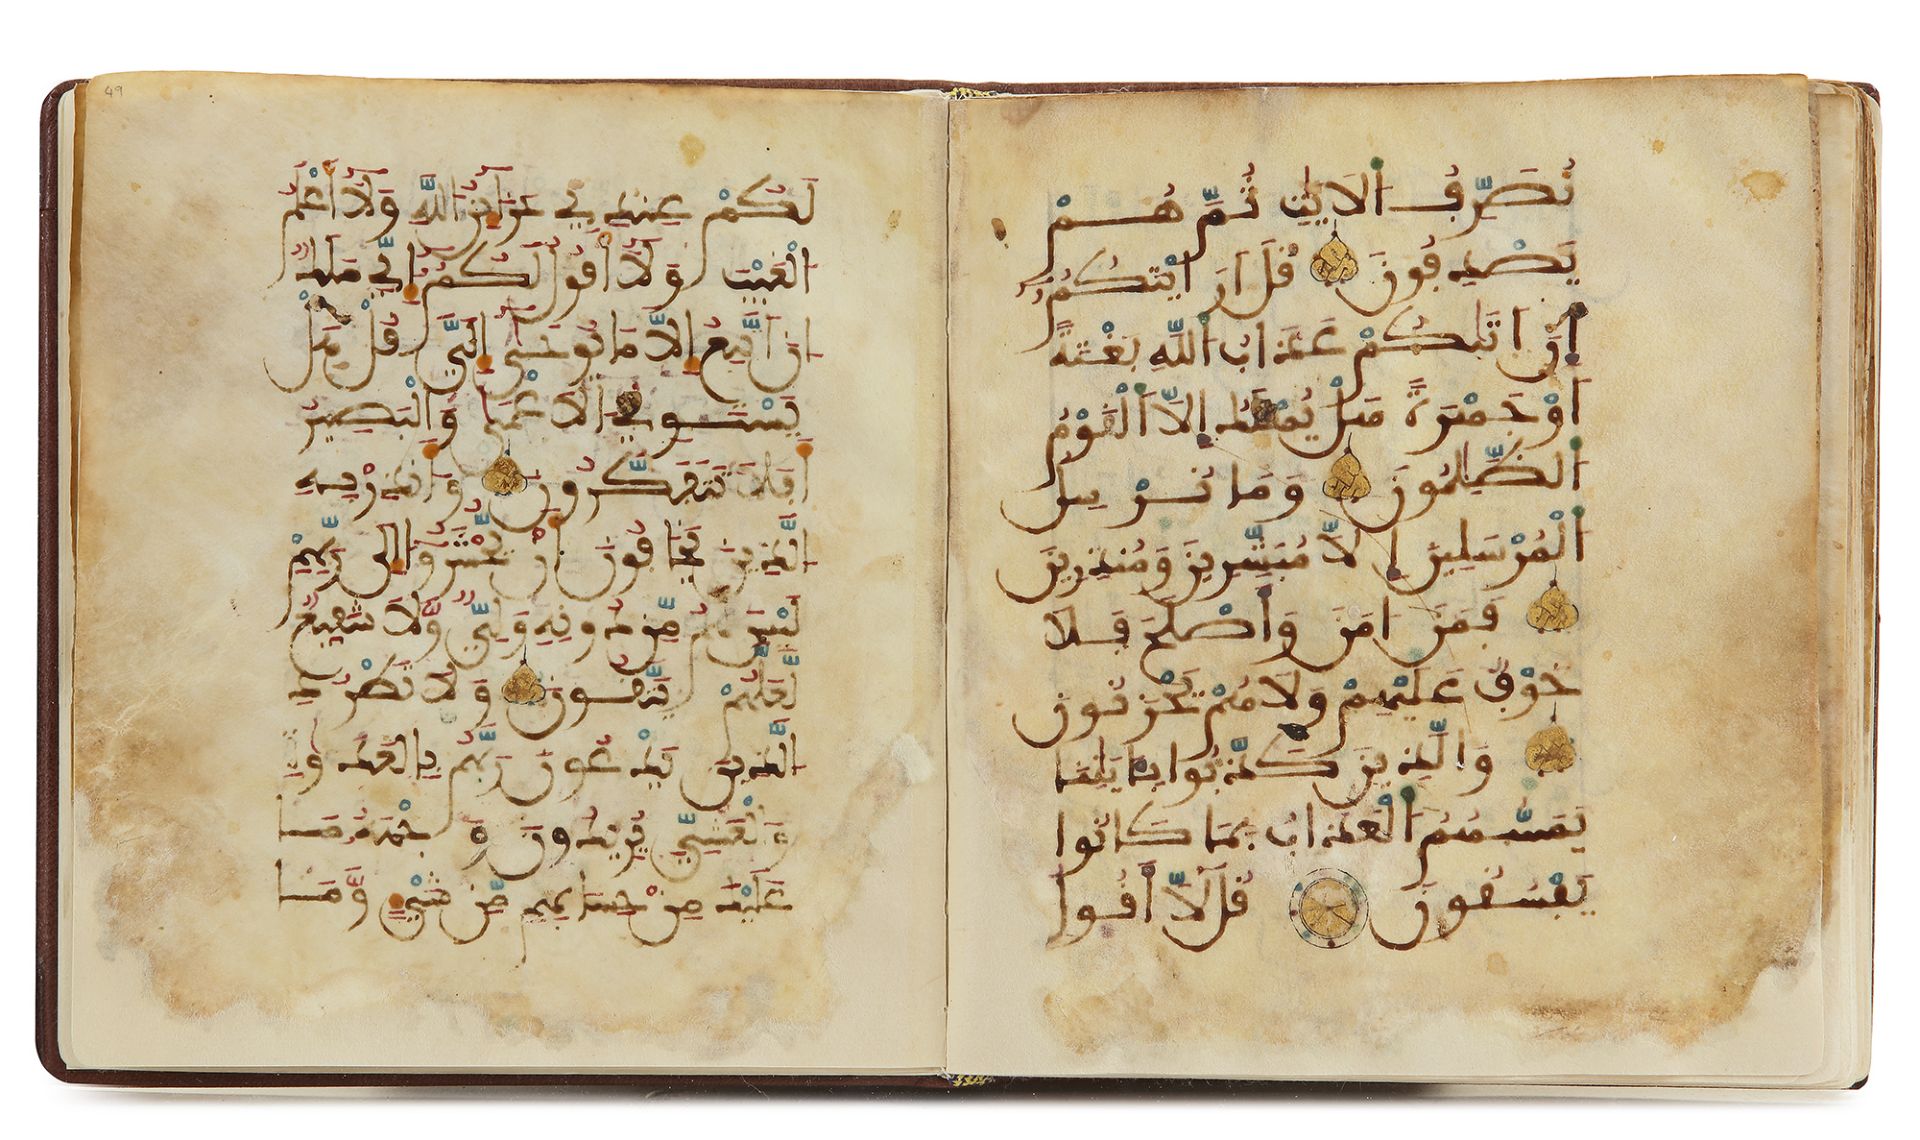 نُصَرِّفُ الَايَتِ ثُمَّ هُمْ
يَصْدِفُونَ قُلَ ارَايْتَكُمُ
إِنَ اتَيكُمْ عَذَابُ اللَّهِ بَغْتَةً
اَوْ جَهْرَةً هَلْ يُهْلَكُ إِلَّا اَلْقَوْمُ
الظَّلِمُونَ وَمَا نُرْسِلُ
الْمُرْسَلِينَ إِلَّا مُبَشِّرِينَ وَمُنذِرِينَ
فَمَنَ امَنَ وَأَصْلَحَ فَلَا
خَوْفٌ عَلَيْهِمْ وَلَا هُمْ يَحْزَنُونَ
وَالَّذِينَ كَذَّبُوا بِايَتِنَا
يَمَسُّهُمُ الْعَذَابُ بِمَا كَانُوا
يَفْسُقُونَ قُل لَّا أَقُولُ
49
لَكُمْ عِندِي خَزَائِنُ اللَّهِ وَلَا أَعْلَمُ
الْغَيْبَ وَلَا أَقُولُ لَكُمُ إِنِّي مَلَكٌ
إِنَ اتَّبِعُ إِلَّا مَا يُوحَى إِلَيَّ قُلْ هَلْ
يَسْتَوِي الَاعْمَى وَالْبَصِيرُ
أَفَلَا تَتَفَكَّرُونَ وَأَنذِرْ بِهِ
الَّذِينَ يَخَافُونَ أَنْ يُحْشَرُوا إِلَى رَبِّهِمْ
لَيْسَ لَهُم مِّن دُونِهِ وَلِيٌّ وَلَا شَفِيعٌ
لَّعَلَّهُمْ يَتَّقُونَ وَلَا تَطْرُدِ
الَّذِينَ يَدْعُونَ رَبَّهُم بِالْغَدَوةِ
وَالْعَشِيِّ يُرِيدُونَ وَجْهَهُ مَا
عَلَيْكَ مِنْ حِسَابِهِم مِّن شَيْءٍ وَمَا